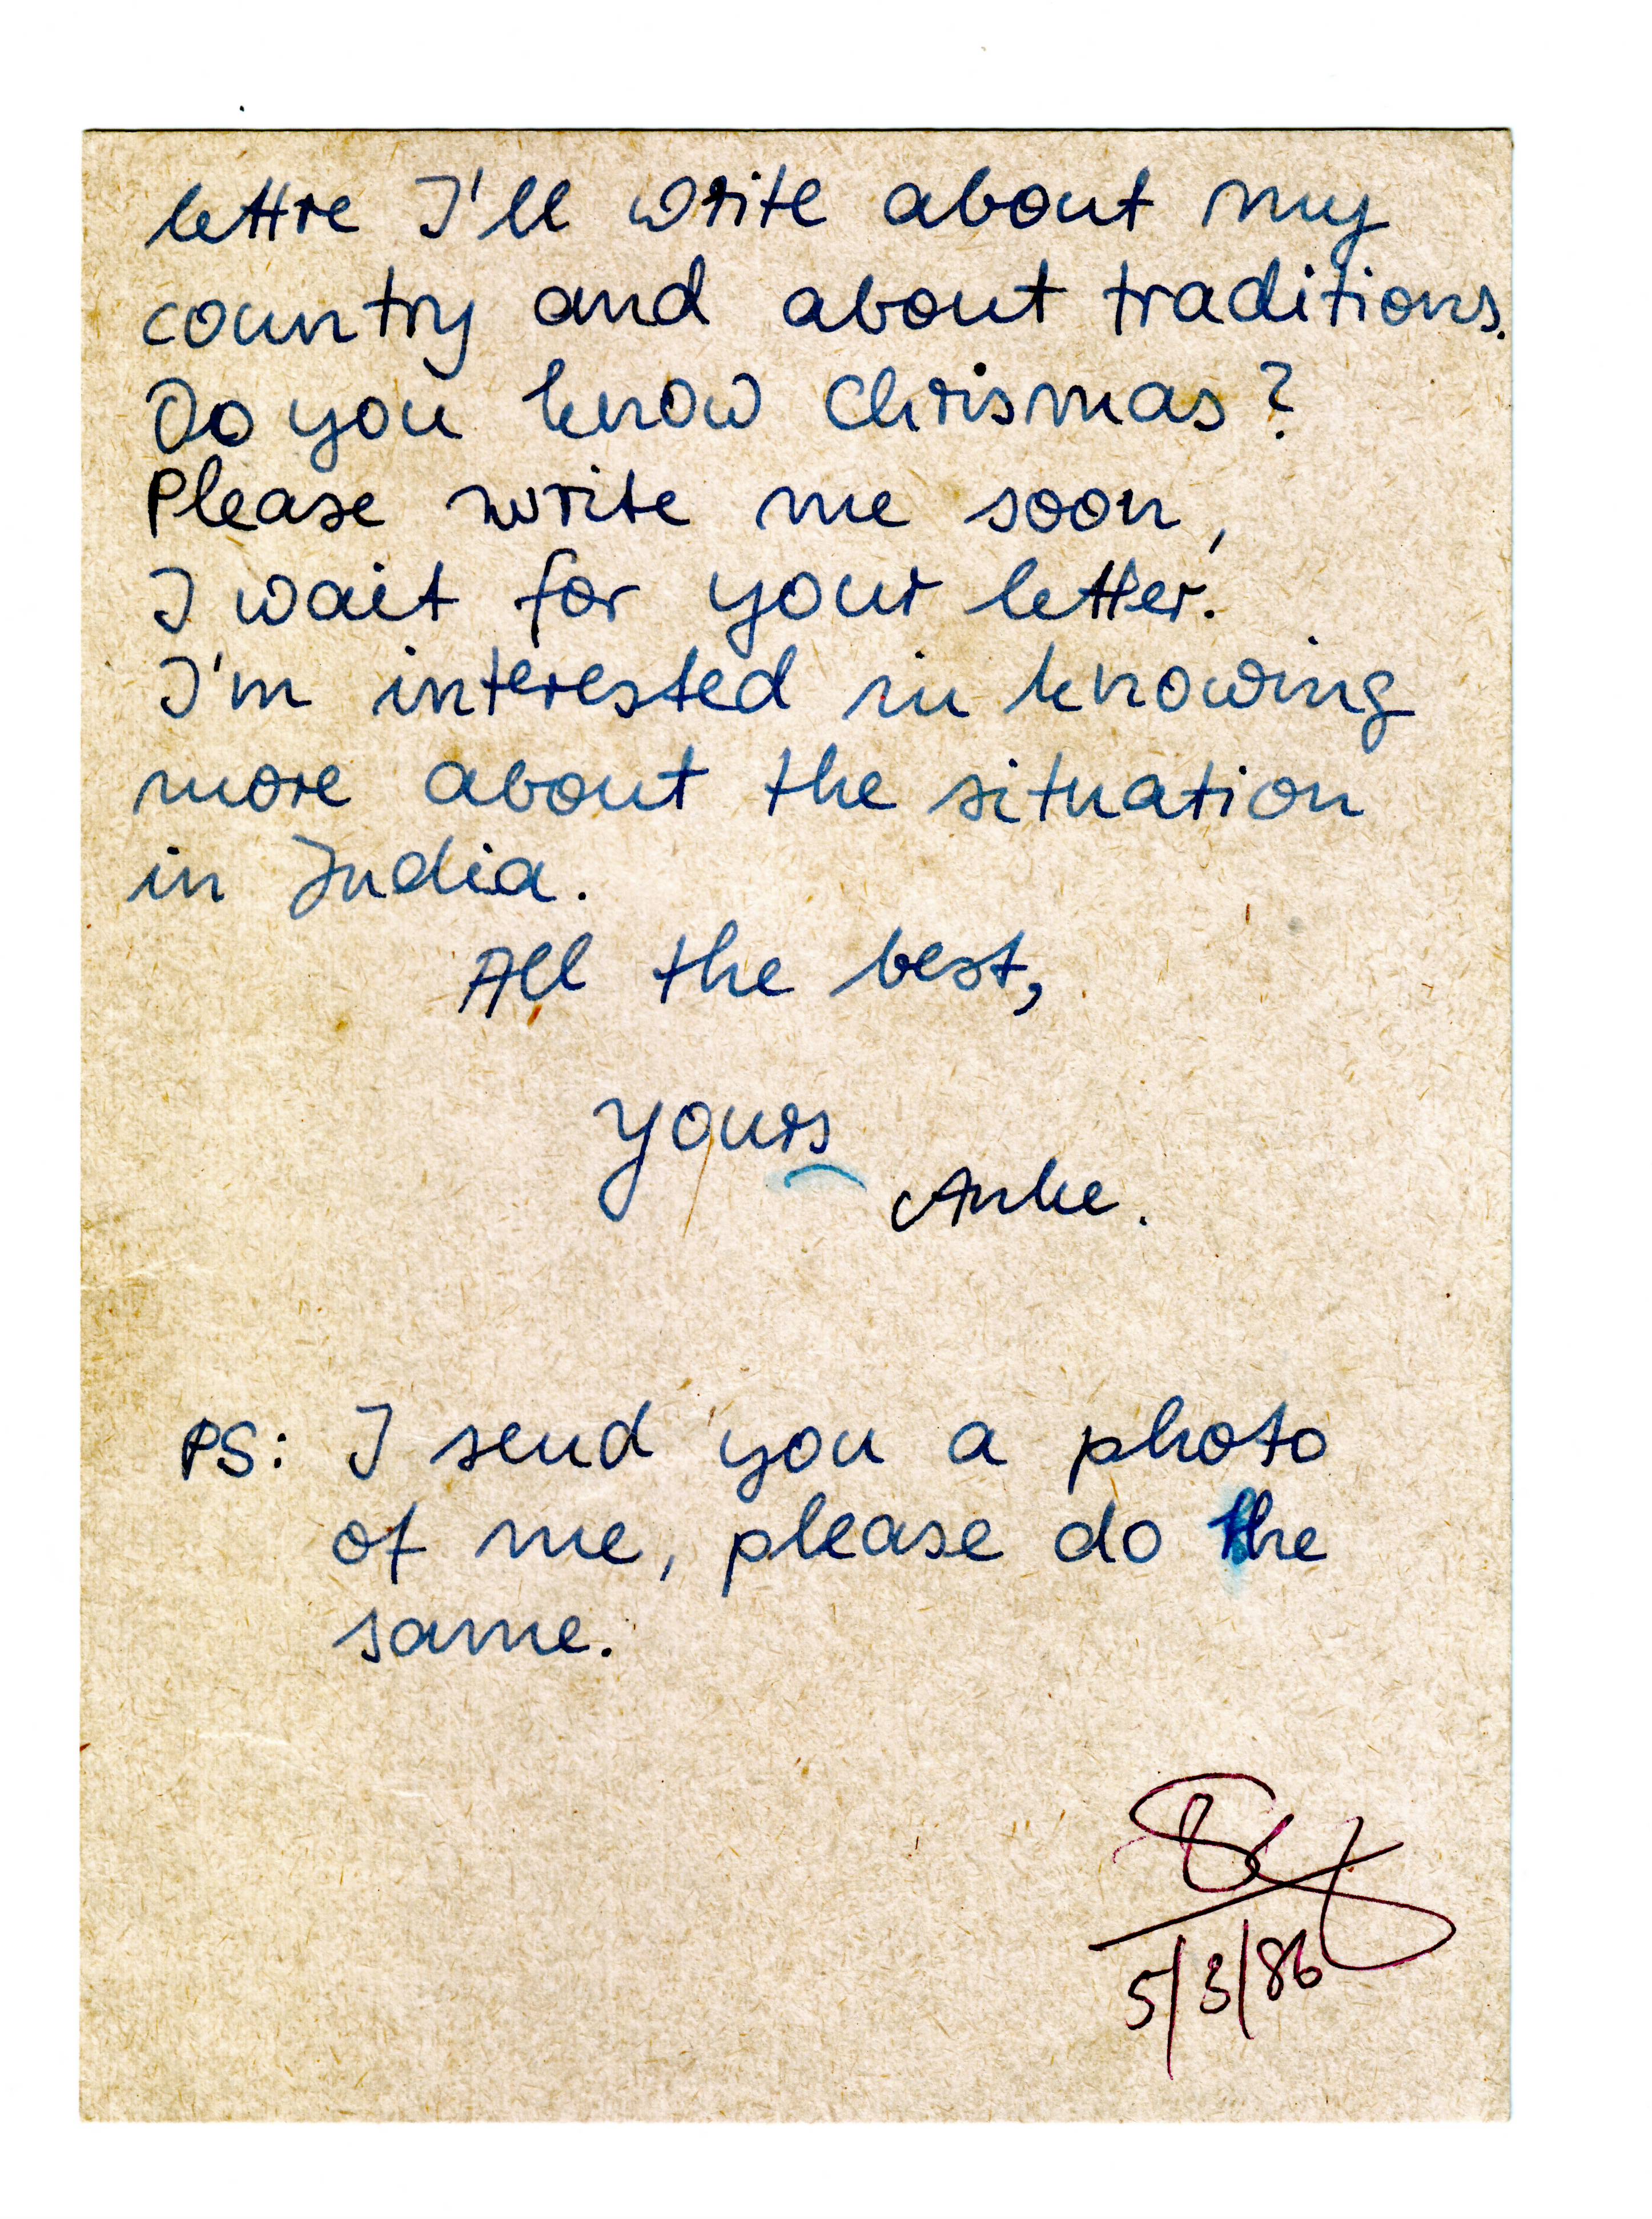 lettre I'll write about my
country and about traditions.
Do you know Chrismas?
Please write me soon,
I wait for your letter.
I'm interested in knowing
more about the situation
in India.
All the best,
yours
Anke.
PS: I send you a photo
of me, please do the
same.
5/3/86